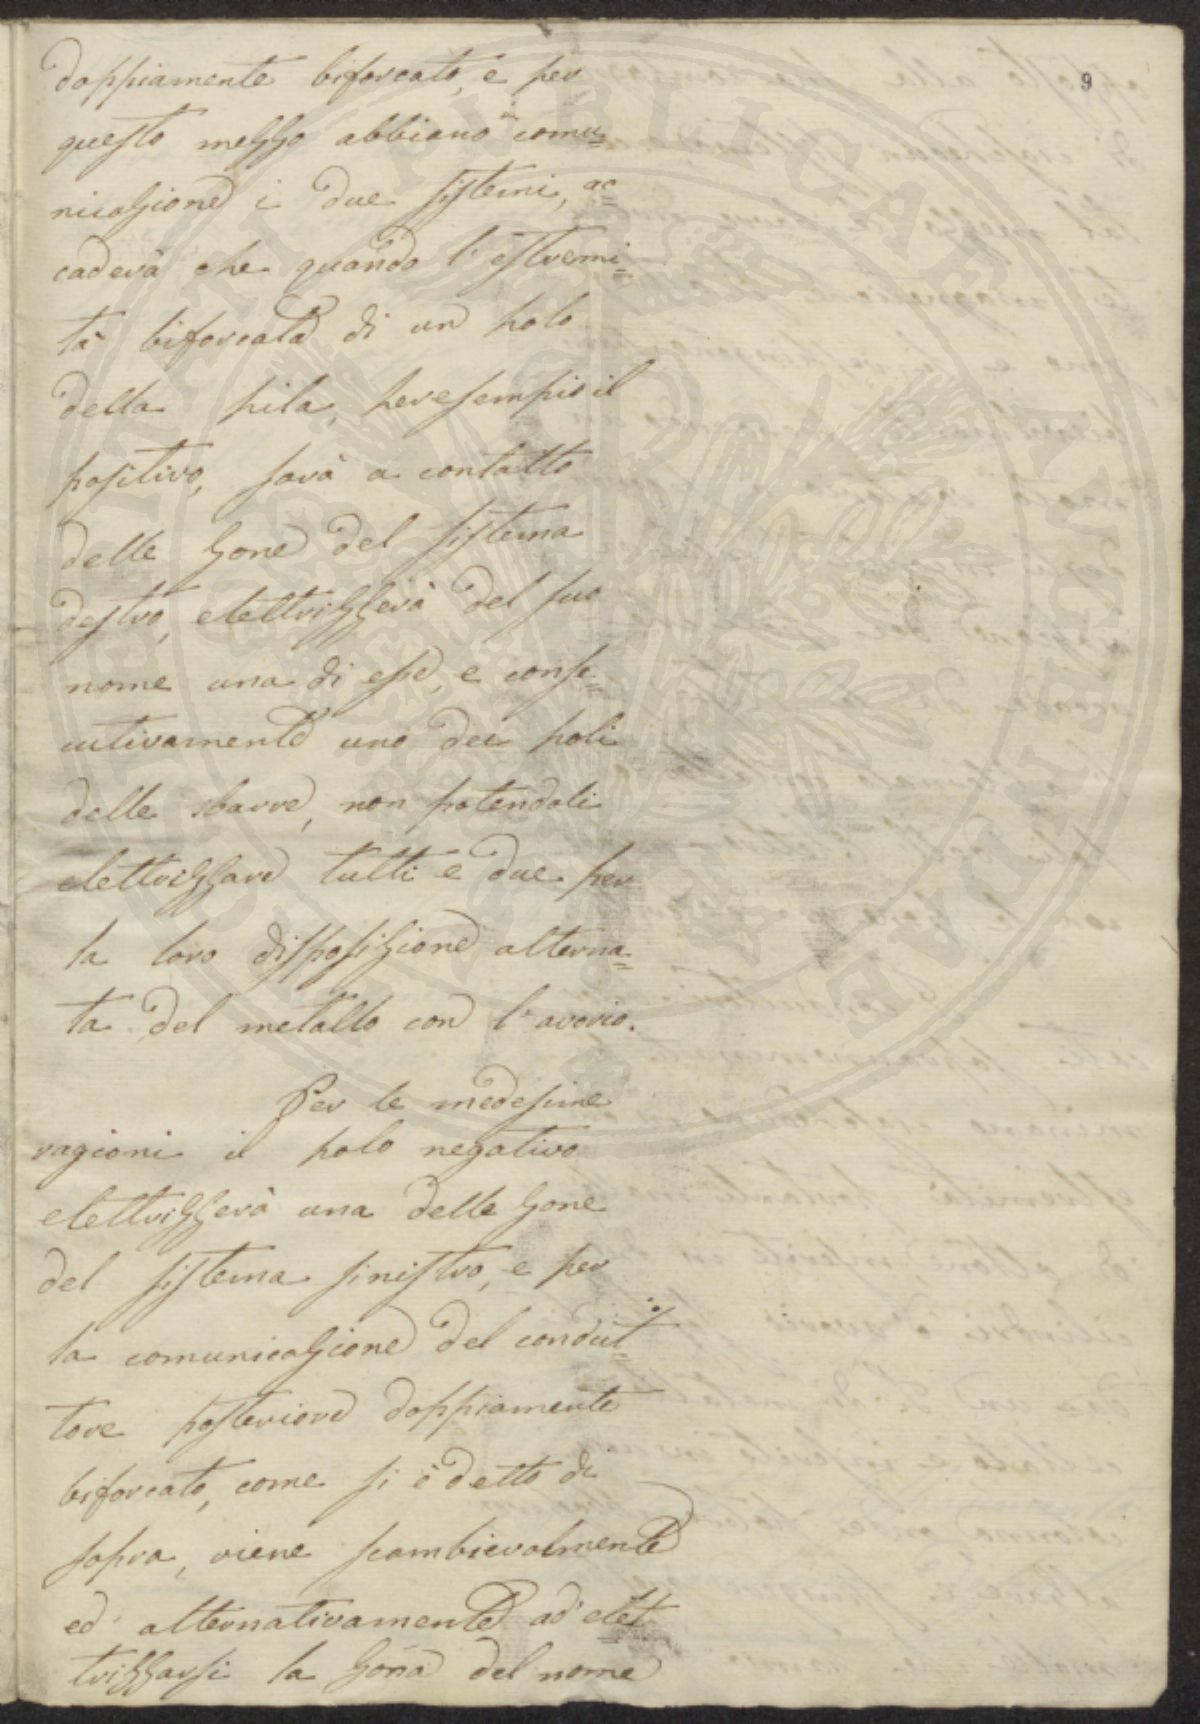 9
doppiamente biforcato, e per
questo mezzo abbiano in comu=
nicazione i due sistemi, ac=
caderà che quando l'estremi=
tà biforcata di un polo
della pila, per esempio il
positivo, sarà a contatto
delle zone del sistema
destro, elettrizzerà del suo
nome una di esse, e conse=
cutivamente uno dei poli
delle sbarre, non potendoli
elettrizzare tutti e due per
la loro disposizione alterna=
ta del metallo con l'avorio.
Per le medesime
ragioni il polo negativo
elettrizzerà una delle zone
del sistema sinistro, e per
la comunicazione del condut=
tore posteriore doppiamente
biforcato, come si è detto di
sopra, viene scambievolmente
ed alternativamente ad elet=
trizzarsi la zona del nome